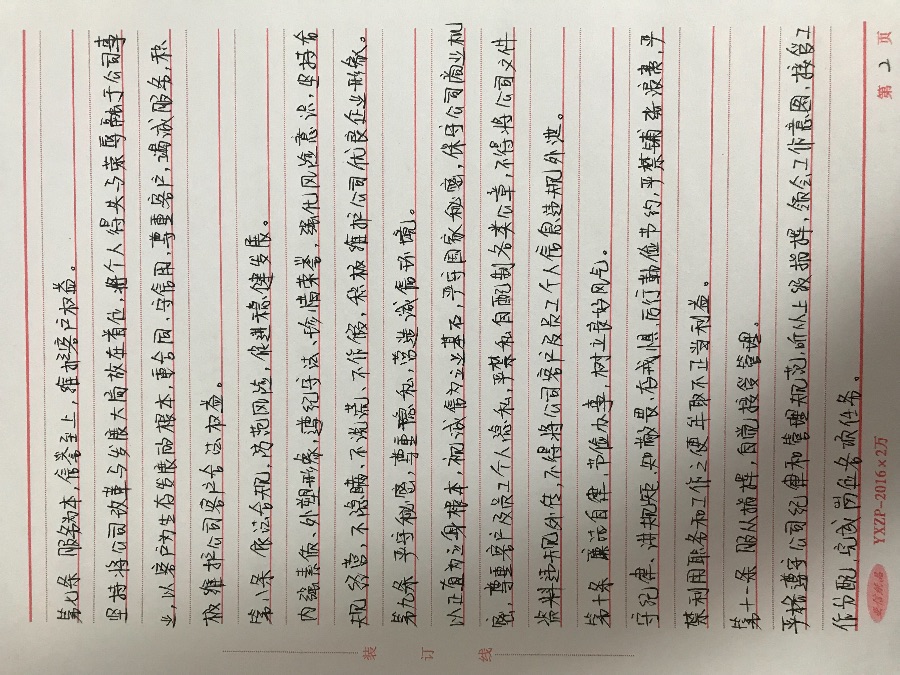 第七条 服务为本,信誉至上,维护客户权益。
坚持将公司改革与发展大局放在首位,将个人得失与荣辱融于公司事
业,以客户为生存发展的根本,重合同、守信用,尊重客户,竭诚服务,积
极维护公司客户合法权益。
第八条 依法合规,防范风险,促进稳健发展。
内强素质、外塑形象,遵纪守法、珍惜荣誉,强化风险意识,坚持合
规经营,不隐瞒、不说谎、不作假,积极维护公司优良企业形象。
第九条 严守秘密,尊重隐私,营造诚信环境。
以正直为立身根本,视诚信为立业基石,严守国家秘密,保守公司商业机
密,尊重客户及员工个人隐私,严禁私自配制各类公章,不得将公司文件
资料违规外传,不得将公司客户及员工个人信息违规外泄。
第十条 廉洁自律,节俭办事,树立良好风气。
守纪律、讲规矩、知敬畏、存戒惧,厉行勤俭节约,严禁铺张浪费,严
禁利用职务和工作之便牟取不正当利益。
第十一条 服从指挥,自觉接受管理。
严格遵守公司纪律和管理规范,听从上级指挥,领会工作意图,接受工
作分配,完成岗位各项任务。
装 订 线
YXZP-2016×2万
第 2 页